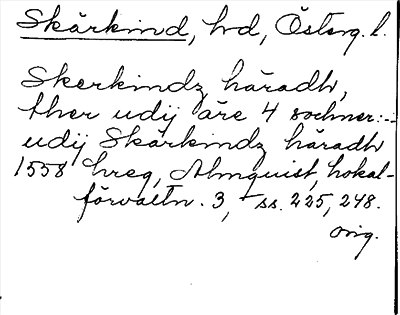 Skärkind, hd, Österg. l.
Skerkindz häradh,
ther udij äre 4 sochner: -
udij Skärkindz häradh
1558 hreg, Almquist, Lokal-
förvaltn. 3, ss. 225, 248.
orig.